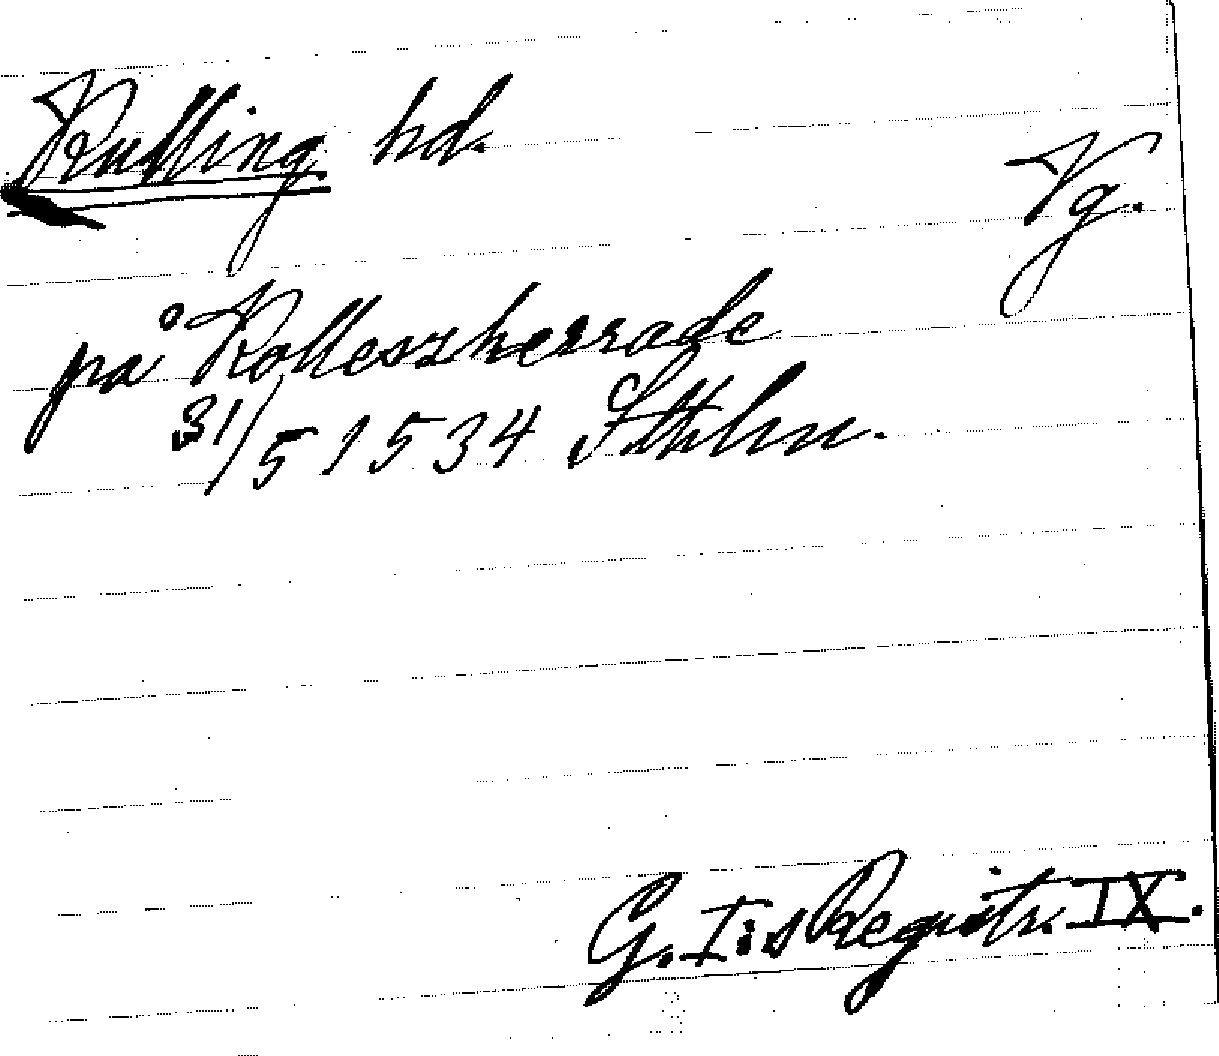 Kulling hd.
Vg.
på Kolleszherrade
31/5 1534 Sthlm.
G. I:s Registr. IX.